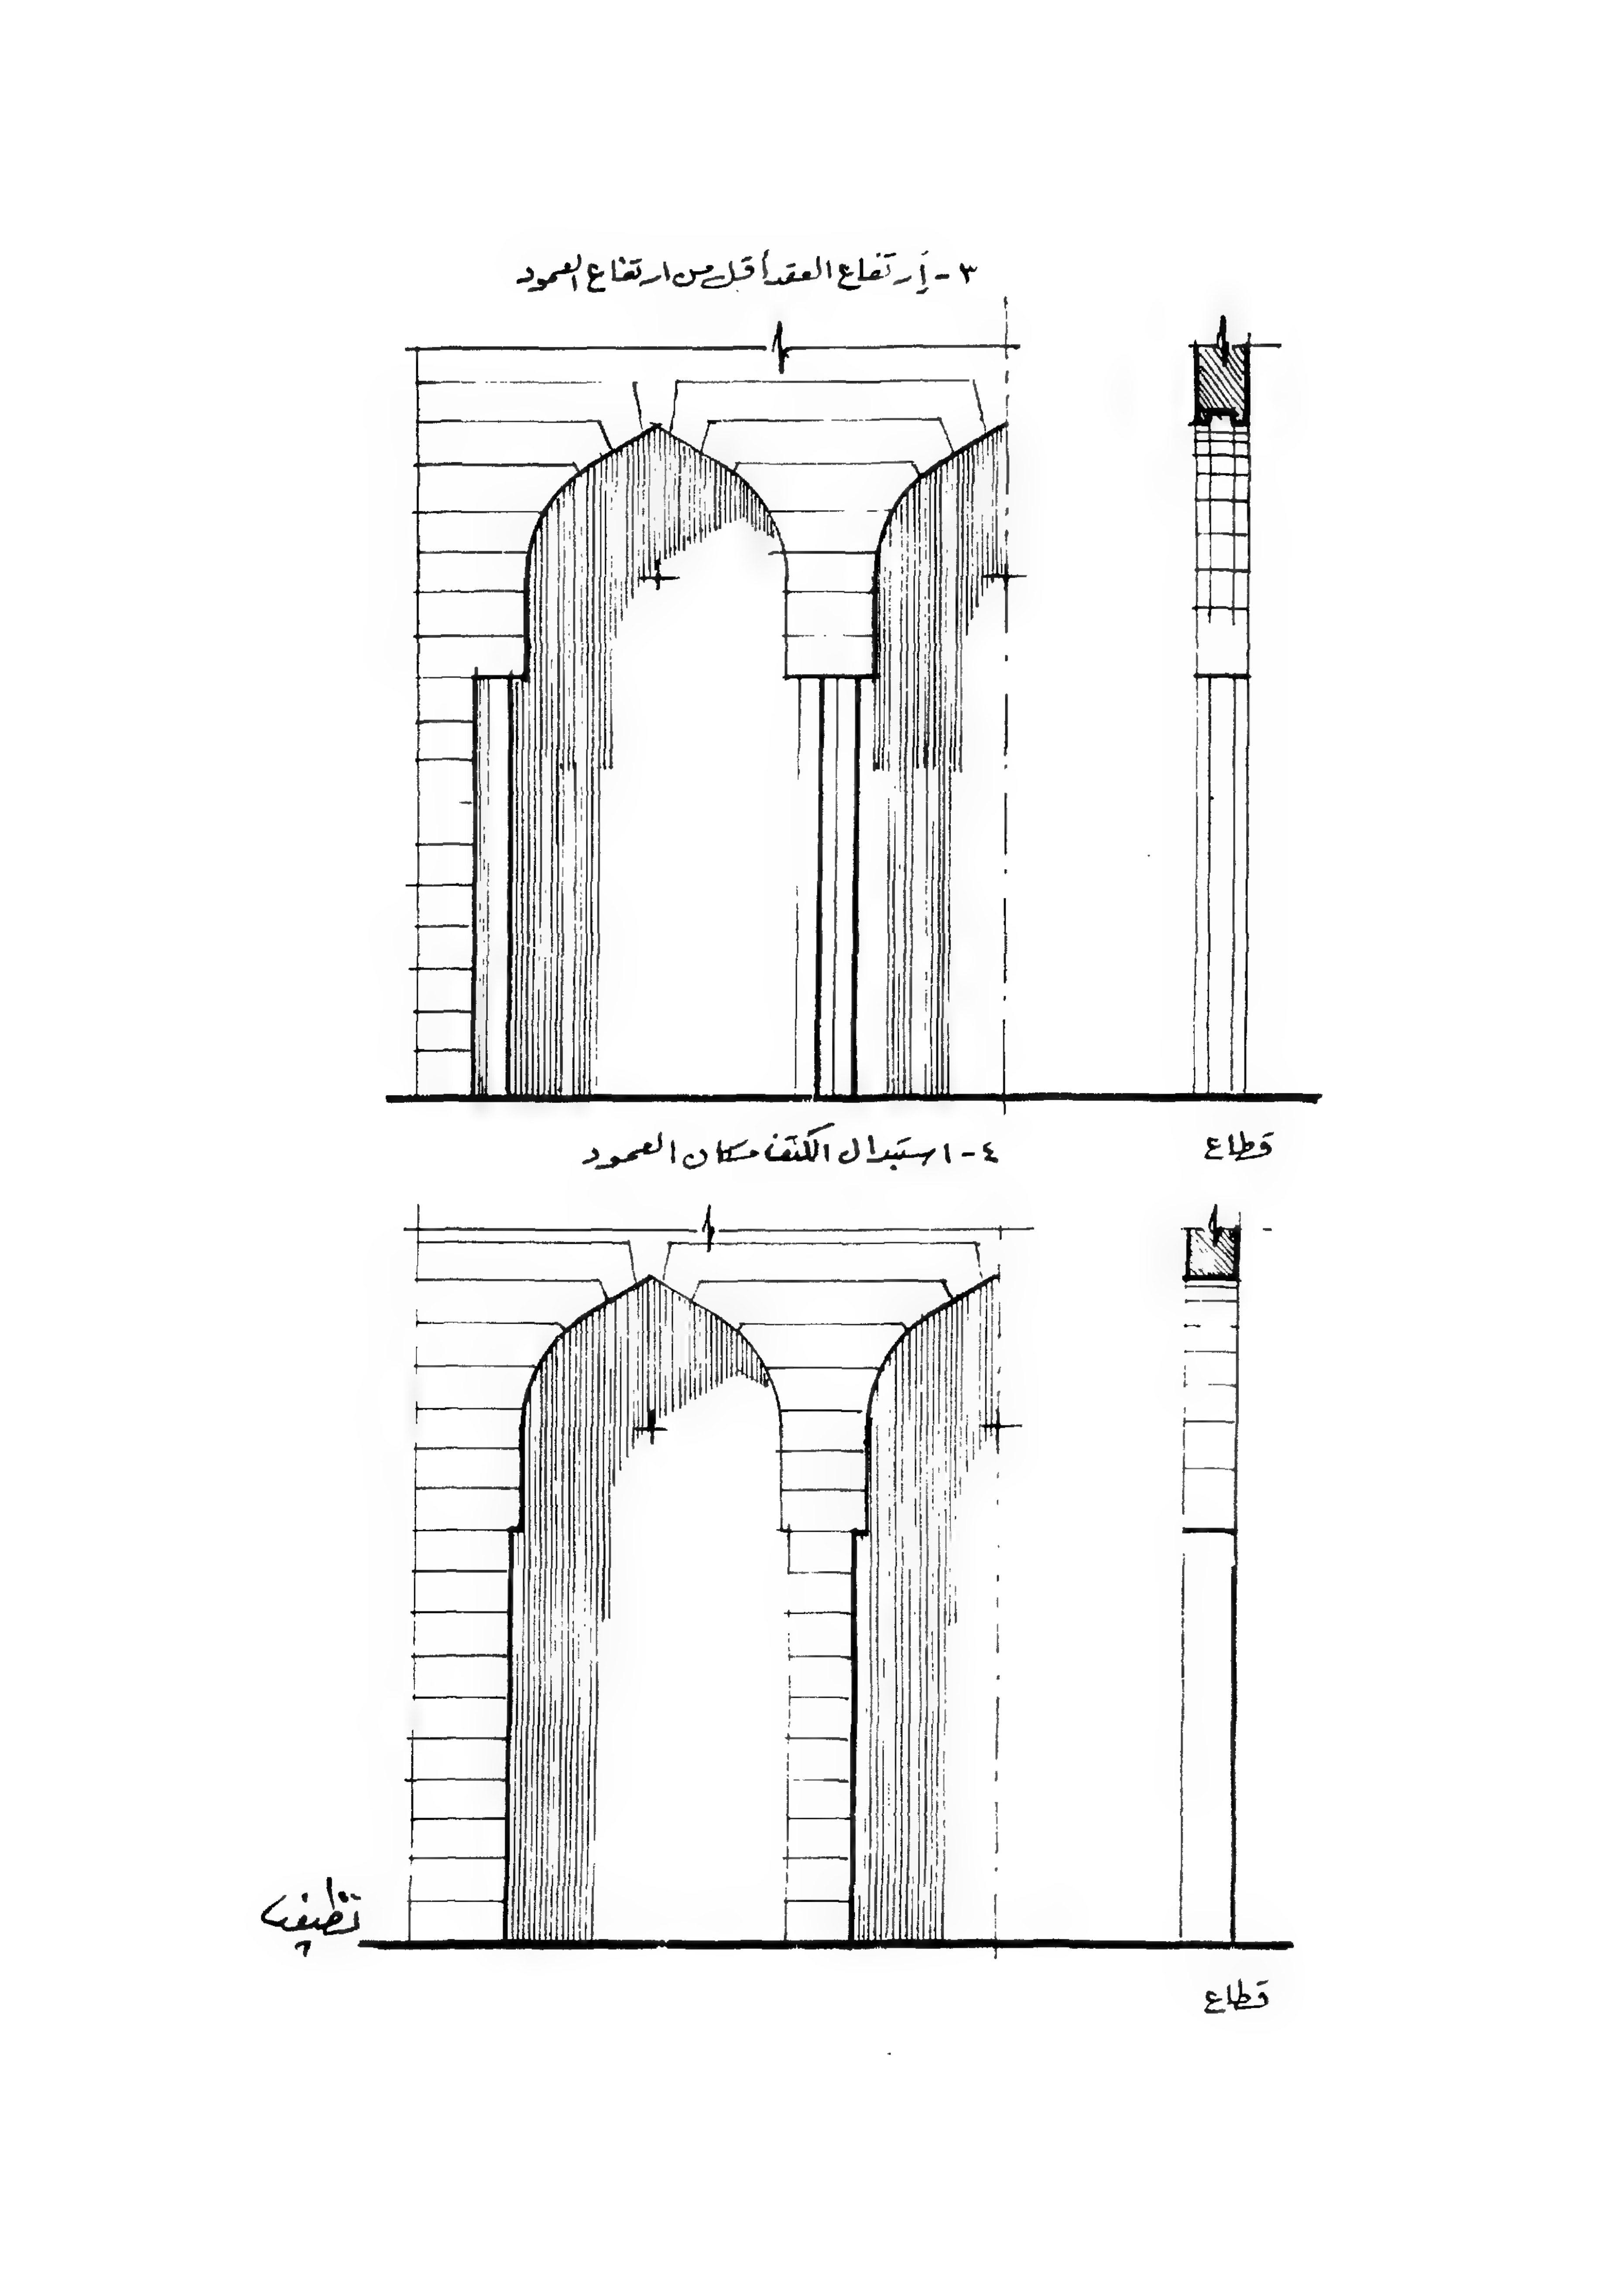 ٣- إرتفاع العقد أقل من ارتفاع العمود
قطاع
٤- استبدال الكتف مكان العمود
قطاع